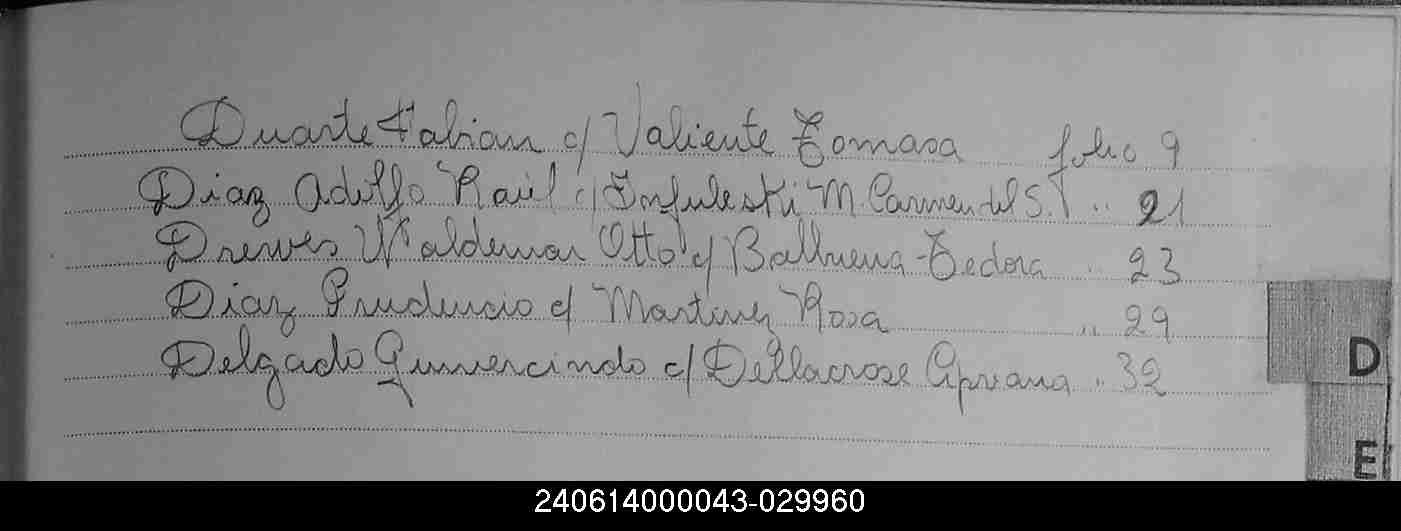 Duarte Fabian c/ Valiente Tomasa folio 9
Diaz Adolfo Raúl c/ Infuleski M. Carmen del S.T .. 21
Drewes Waldemar Otto c/ Balbuena Tedora .. 23
Diaz Prudencio c/ Martinez Rosa .. 29
Delgado Gumercindo c/ Dellacrose Cipriana .. 32
D
E
240614000043-029960